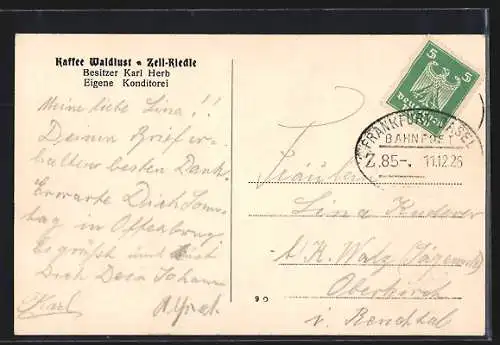 Kaffee Waldlust • Zell-Riedle
Besitzer Karl Herb
Eigene Konditorei
Meine liebe Lina!!
Deinen Brief er-
halten besten Dank.
Erwarte Dich Sonn-
tag in Offenburg
Es grüßt und küsst
Dich Dein
Karl
5 5
FRANKFURT
BAHNPOST
Z.85-. 11.12.26
Fräulein
Lina
b/ K. Walz
Oberkirch
i. Renchtal